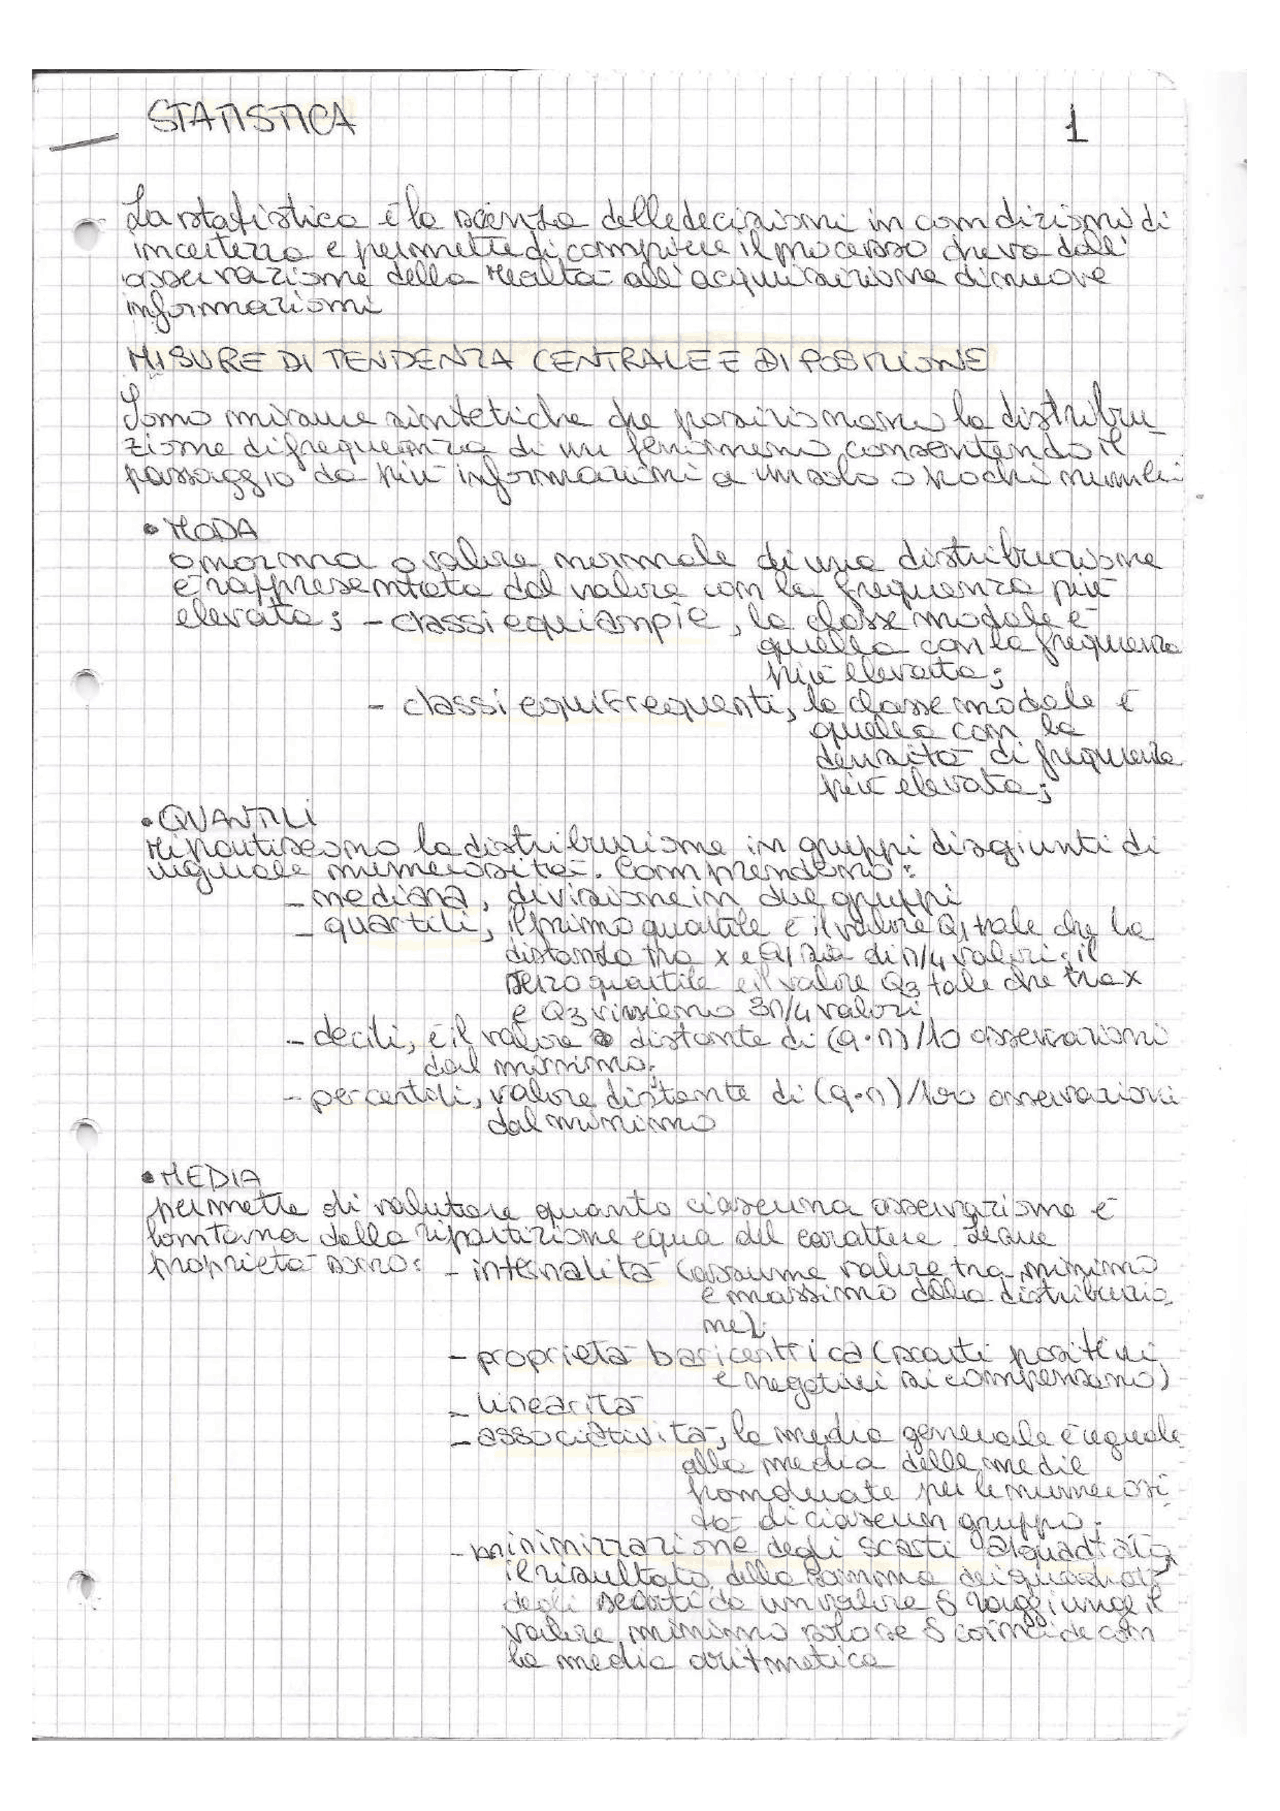 STATISTICA
1
La statistica è la scienza delle decisioni in condizioni di
incertezza e permette di compiere il processo che va dall'
osservazione della realtà all'acquisizione di nuove
informazioni
MISURE DI TENDENZA CENTRALE E DI POSIZIONE
Sono misure sintetiche che posizionano la distribu_
zione di frequenza di un fenomeno, consentendo il
passaggio da più informazioni a un solo o pochi numeri
• MODA
o norma o valore normale di una distribuzione
è rappresentata dal valore con la frequenza più
elevata; - classi equiampie, la classe modale è
quella con la frequenza
più elevata;
- classi equifrequenti, la classe modale è
quella con la
densità di frequenza
più elevata;
• QUANTILI
ripartiscono la distribuzione in gruppi disgiunti di
uguale numerosità. Comprendono:
- mediana, divisione in due gruppi
- quartili, il primo quartile è il valore Q1 tale che la
distanza tra x e Q1 sia di n/4 valori; il
terzo quartile è il valore Q3 tale che tra x
e Q3 vi siano 3n/4 valori
- decili, è il valore distante di (q·n)/10 osservazioni
dal minimo;
- percentili, valore distante di (q·n)/100 osservazioni
dal minimo
• MEDIA
permette di valutare quanto ciascuna osservazione è
lontana dalla ripartizione equa del carattere. Le sue
proprietà sono: - internalità (assume valore tra minimo
e massimo della distribuzio_
ne);
- proprietà baricentrica (scarti positivi
e negativi si compensano)
- linearità
- associatività, la media generale è uguale
alla media delle medie
ponderate per le numerosi
tà di ciascun gruppo;
- minimizzazione degli scarti al quadrato,
il risultato della somma dei quadrati
degli scarti da un valore δ raggiunge il
valore minimo solo se δ coincide con
la media aritmetica